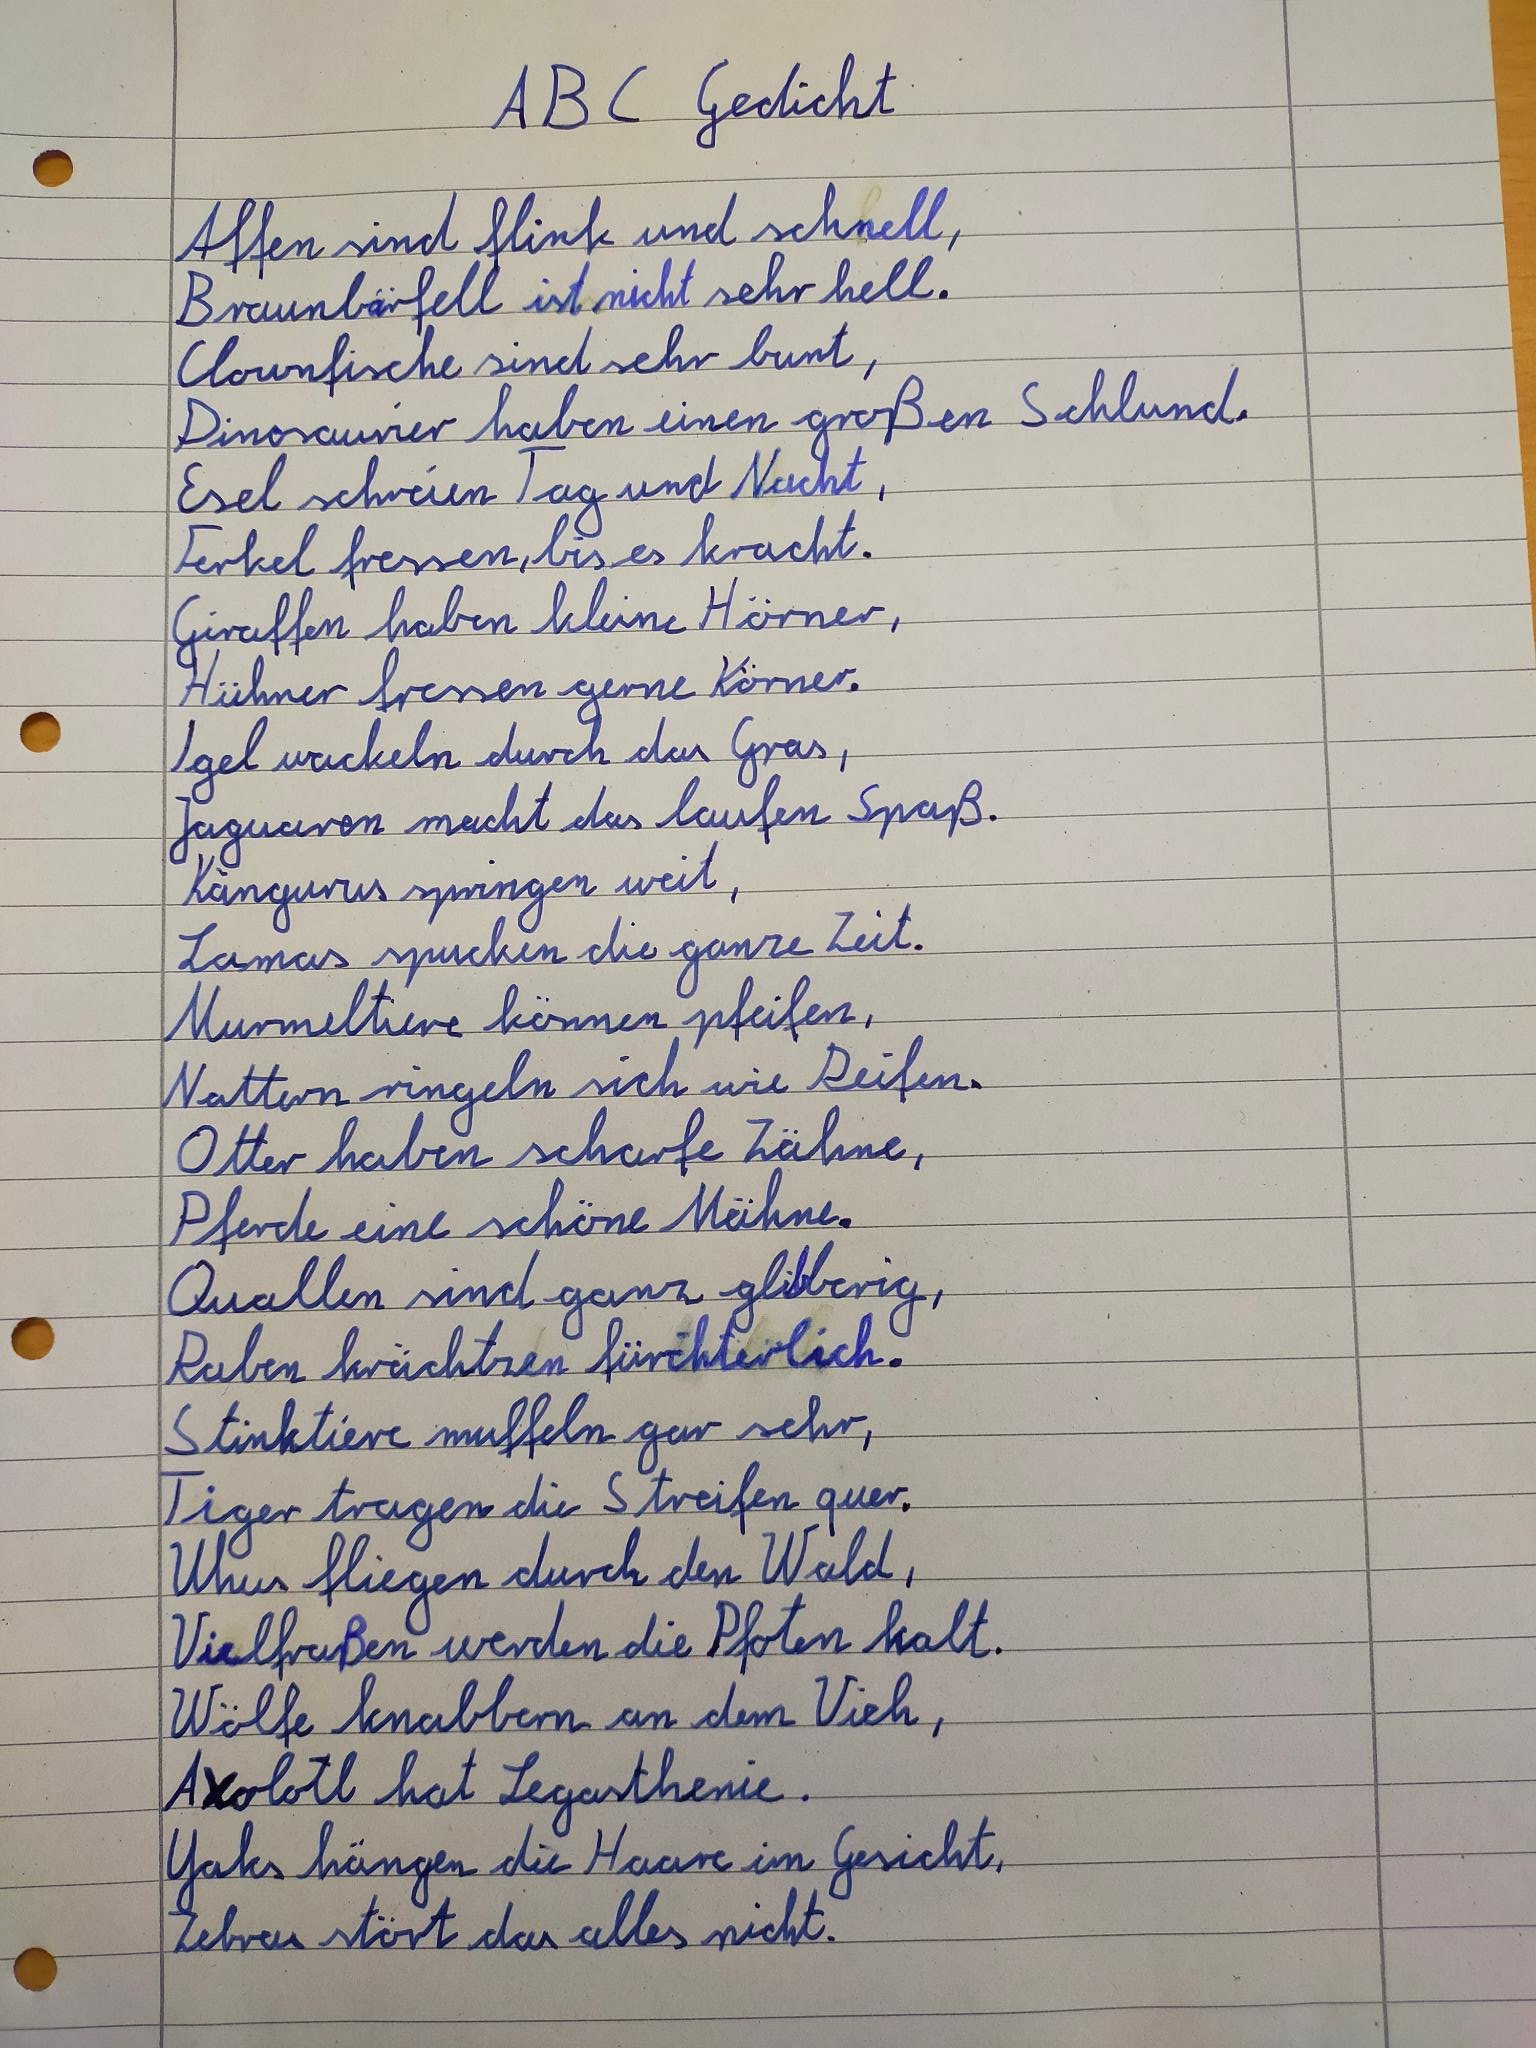 ABC Gedicht
Affen sind flink und schnell,
Braunbärfell ist nicht sehr hell.
Clownfische sind sehr bunt,
Dinosaurier haben einen großen Schlund.
Esel schreien Tag und Nacht,
Ferkel fressen, bis es kracht.
Giraffen haben kleine Hörner,
Hühner fressen gerne Körner.
Igel wackeln durch das Gras,
Jaguaren macht das laufen Spaß.
Kängurus springen weit,
Lamas spucken die ganze Zeit.
Murmeltiere können pfeifen,
Nattern ringeln sich wie Reifen.
Otter haben scharfe Zähne,
Pferde eine schöne Mähne.
Quallen sind ganz glibberig,
Raben krächtzen fürchterlich.
Stinktiere muffeln gar sehr,
Tiger tragen die Streifen quer.
Uhus fliegen durch den Wald,
Vielfraßen werden die Pfoten kalt.
Wölfe knabbern an dem Vieh,
Axolotl hat Legasthenie.
Yaks hängen die Haare im Gesicht,
Zebras stört das alles nicht.